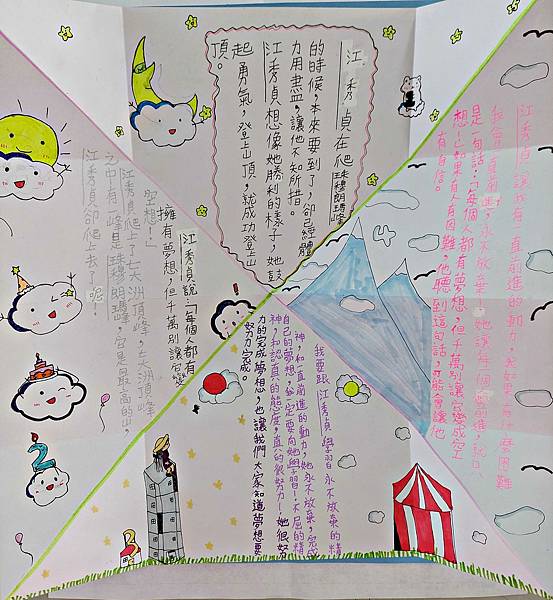 江秀貞在爬珠穆朗瑪峰
的時候，本來要到了，卻已經體
力用盡，讓他不知所措。
江秀貞想像她勝利的樣子，她鼓
起勇氣，登上山頂，就成功登上山
頂。
江秀貞讓我有一直前進的動力，
我會一直前進，永不放棄！她讓每個
是一句話：「每個人都有夢想，但千萬別讓它變成空
想！」如果有人有困難，他聽到這句話，可能會讓他
有自信。
江秀貞說：「每個人都有
擁有夢想，但千萬別讓它變
空想！」
江秀貞爬上了七大洲頂峰，七大洲頂峰
之中有一峰是珠穆朗瑪峰，它是最高的山，
江秀貞卻爬上去了呢！
我要跟江秀貞學習永不放棄的精
神，和一直前進的動力，她永不放棄，完成
自己的夢想，我一定要向她學習！不屈的精
神，和認真的態度，真的很努力！她很努
力的完成夢想，也讓我們大家知道夢想要
努力完成。
2